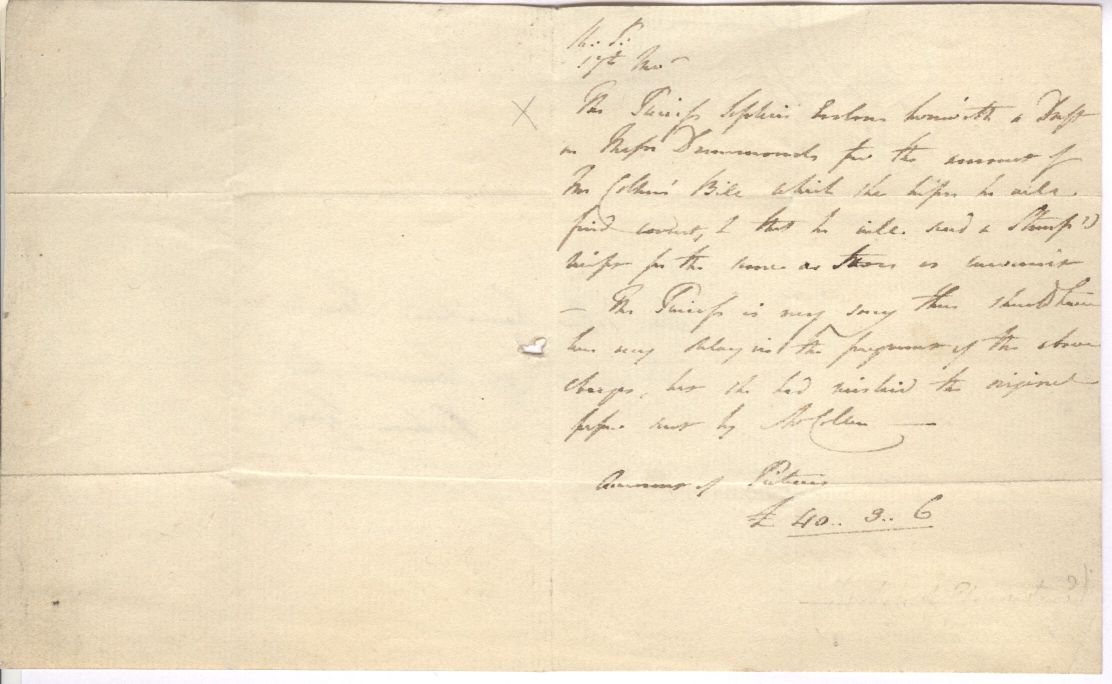 17th Novr
The Princess Sophia Encloses herewith a Draft
on Messrs Drummonds for the amount of
Mr Collen's Bill which she hopes he will
find correct, & that he will send a Stamp'd
for the same as soon as convenient
— The Princess is very sorry there should have
been any delay in the payment of the above
charge, but she had mislaid the original
paper sent by Mr Collen —
Amount of Pictures
£ 40.. 3.. 6